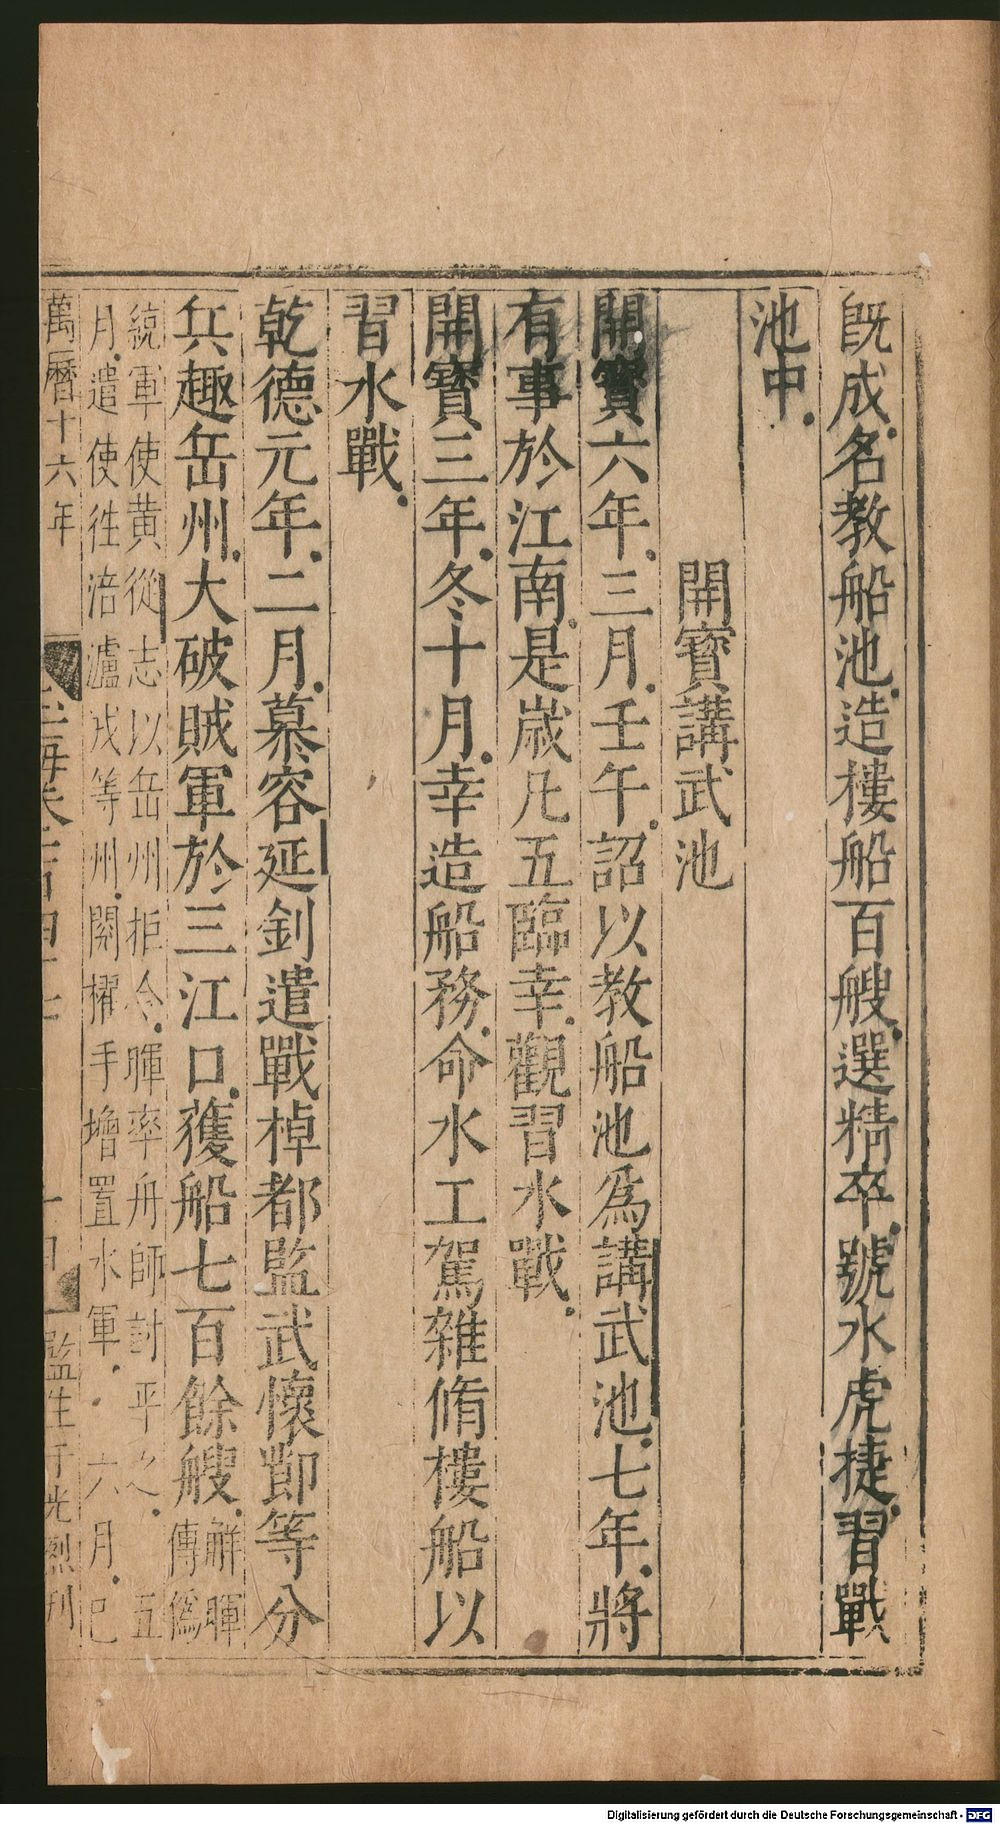 旣成名教船池造樓船百艘選精卒號水虎捷習戰
池中
開寳講武池
開寳六年三月壬午詔以教船池爲講武池七年將
有事於江南是歳凡五臨幸觀習水戰
開寳三年冬十月幸造船務命水工駕雜脩樓船以
習水戰
乾德元年二月慕容延釗遣戰棹都監武懷節等分
兵趣岳州大破賊軍於三江口獲船七百餘艘解暉
傳僞
統軍使黄從志以岳州拒命暉率舟師討平之五
月遣使徃涪瀘戎等州閱擢手增置水軍六月己
萬曆十六年
監生于光烈刊
Digitalisierung gefördert durch die Deutsche Forschungsgemeinschaft - DFG